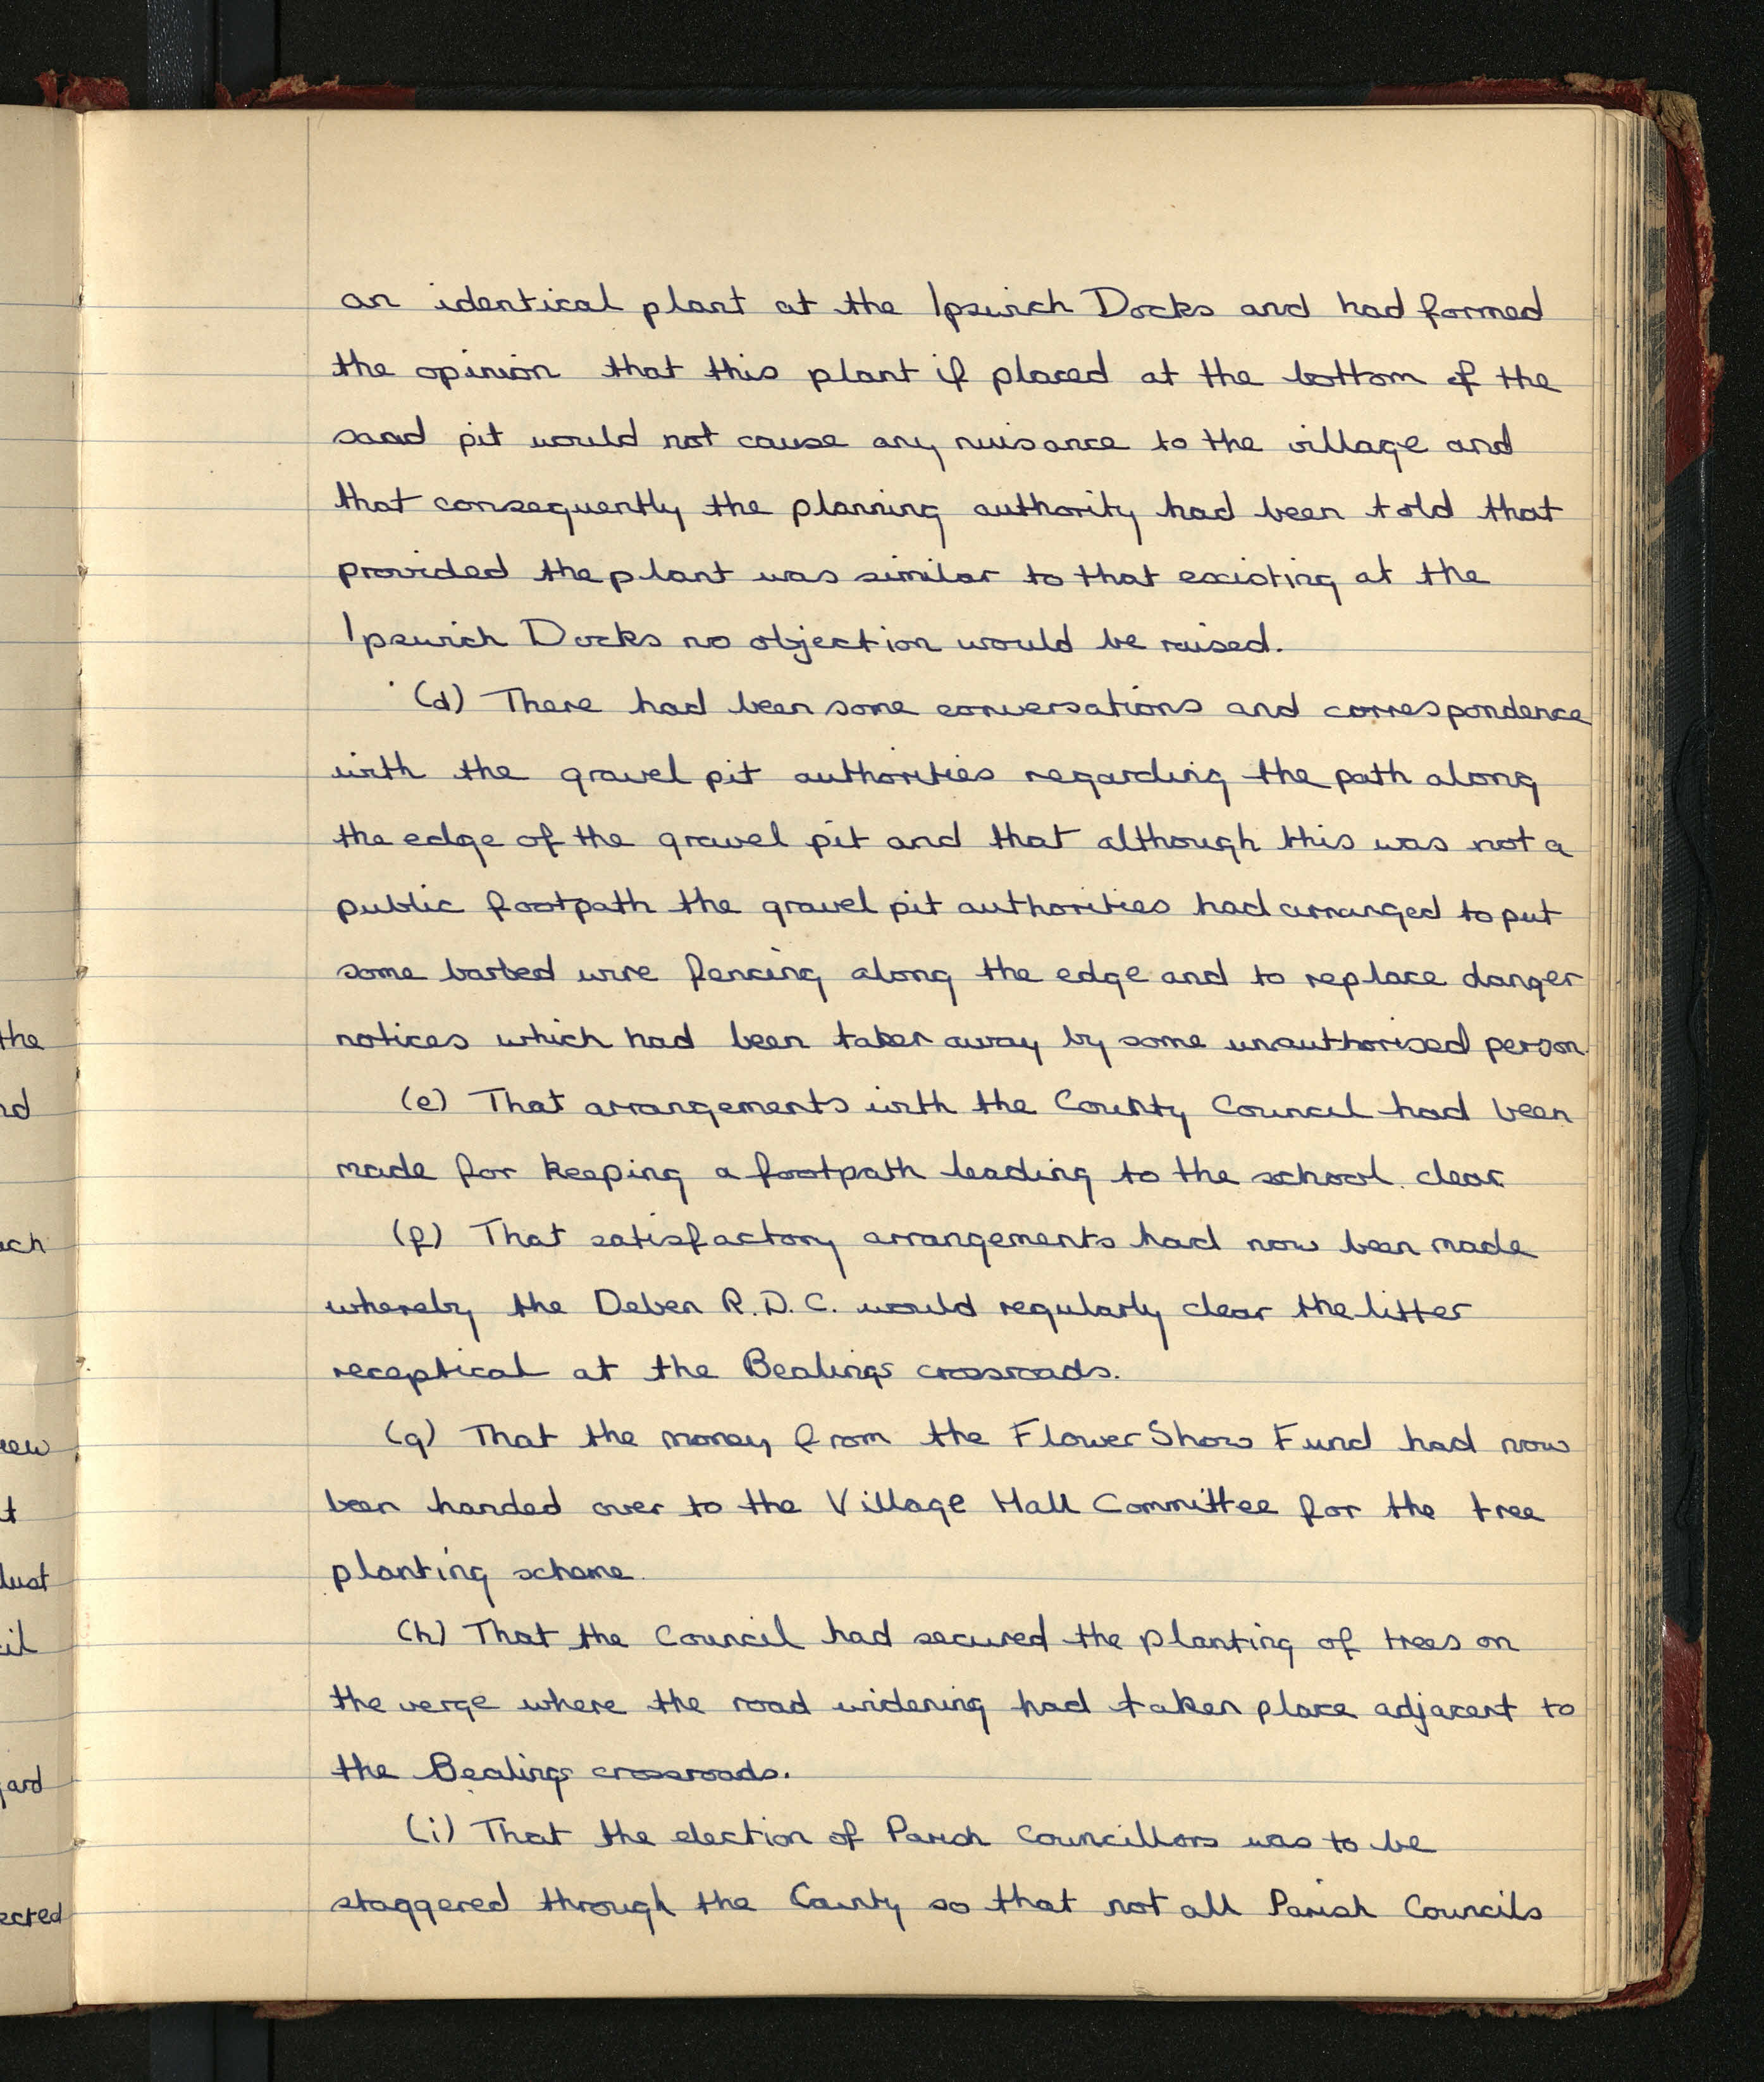 an identical plant at the Ipswich Docks and had formed
the opinion that this plant if placed at the bottom of the
sand pit would not cause any nuisance to the village and
that consequently the planning authority had been told that
provided the plant was similar to that existing at the
Ipswich Docks no objection would be raised.
(d) There had been some conversations and correspondence
with the gravel pit authorities regarding the path along
the edge of the gravel pit and that although this was not a
public footpath the gravel pit authorities had arranged to put
some barbed wire fencing along the edge and to replace danger
notices which had been taken away by some unauthorised person.
(e) That arrangements with the County Council had been
made for keeping a footpath leading to the school clear
(f) That satisfactory arrangements had now been made
whereby the Deben R.D.C. would regularly clear the litter
receptical at the Bealings crossroads.
(g) That the money from the Flower Show Fund had now
been handed over to the Village Hall Committee for the tree
planting scheme.
(h) That the Council had secured the planting of trees on
the verge where the road widening had taken place adjacent to
the Bealings crossroads.
(i) That the election of Parish Councillors was to be
staggered through the County so that not all Parish Councils
the
ew
t
il